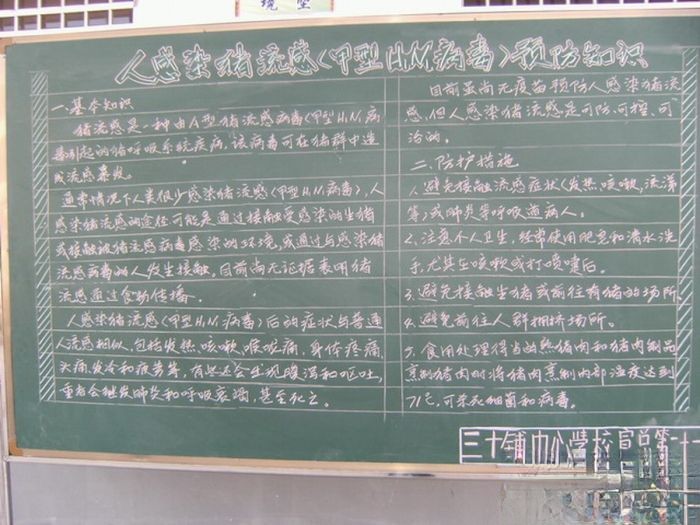 境 室
人感染猪流感(甲型H1N1病毒)预防知识
一.基本知识
猪流感是一种由A型猪流感病毒(甲型H1N1病
毒)引起的猪呼吸系统疾病,该病毒可在猪群中造
成流感暴发。
通常情况下人类很少感染猪流感(甲型H1N1病毒),人
感染猪流感的途径可能是通过接触受感染的生猪
或接触被猪流感病毒感染的环境,或通过与感染猪
流感病毒的人发生接触,目前尚无证据表明猪
流感通过食物传播。
人感染猪流感(甲型H1N1病毒)后的症状与普通
人流感相似,包括发热、咳嗽、喉咙痛、身体疼痛、
头痛、发冷和疲劳等,有些还会出现腹泻和呕吐,
重者会继发肺炎和呼吸衰竭,甚至死亡。
目前虽尚无疫苗预防人感染猪流
感,但人感染猪流感是可防、可控、可
治的。
二.防护措施
1.避免接触流感症状(发热,咳嗽,流涕
等)或肺炎等呼吸道病人。
2.注意个人卫生,经常使用肥皂和清水洗
手,尤其在咳嗽或打喷嚏后。
3.避免接触生猪或前往有猪的场所。
4.避免前往人群拥挤场所。
5.食用处理得当的熟猪肉和猪肉制品
烹制猪肉时将猪肉烹制内部温度达到
71℃,可杀死细菌和病毒。
三十铺中小学校宣总第十